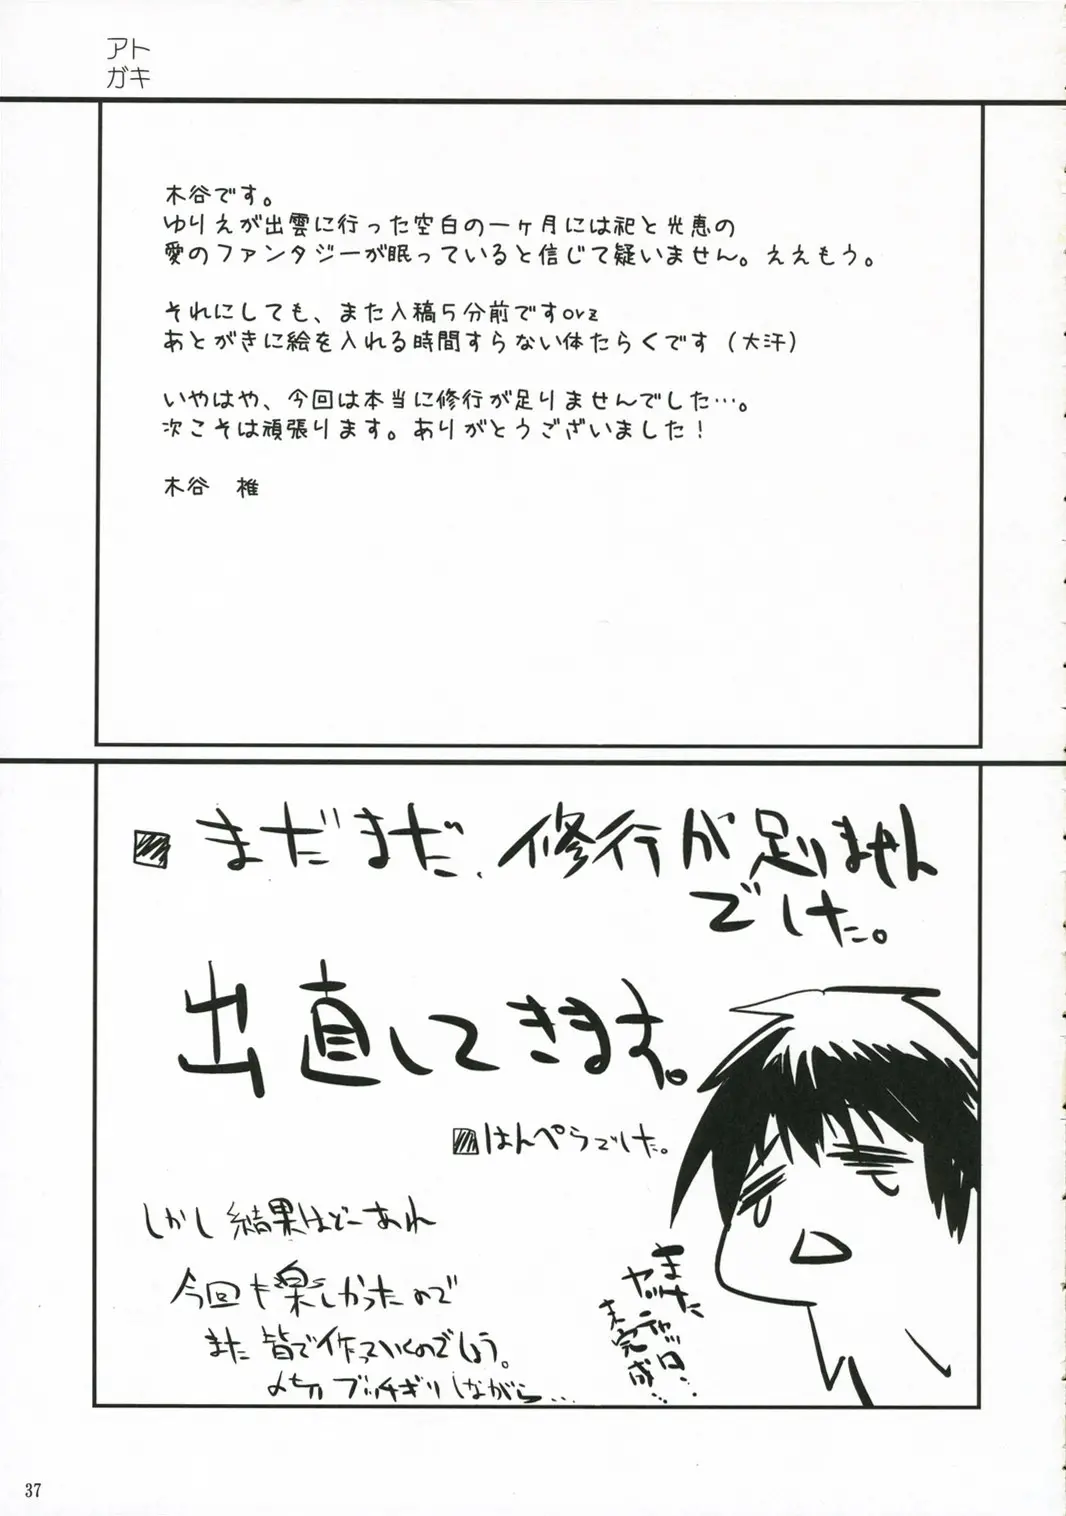 アト
ガキ
木谷です。
ゆりえが出雲に行った空白の一ヶ月には祀と光恵の
愛のファンタジーが眠っていると信じて疑いません。ええもう。
それにしても、また入稿5分前ですorz
あとがきに絵を入れる時間すらない体たらくです（大汗）
いやはや、今回は本当に修行が足りませんでした…。
次こそは頑張ります。ありがとうございました！
木谷　椎
まだまだ、修行が足りません
でした。
出直してきます。
はんぺらでした。
しかし結果はどーあれ
今回も楽しかったので
また皆で作っていくのでしょう。
〆切ブッチギリしながら…
また
未完成…
37